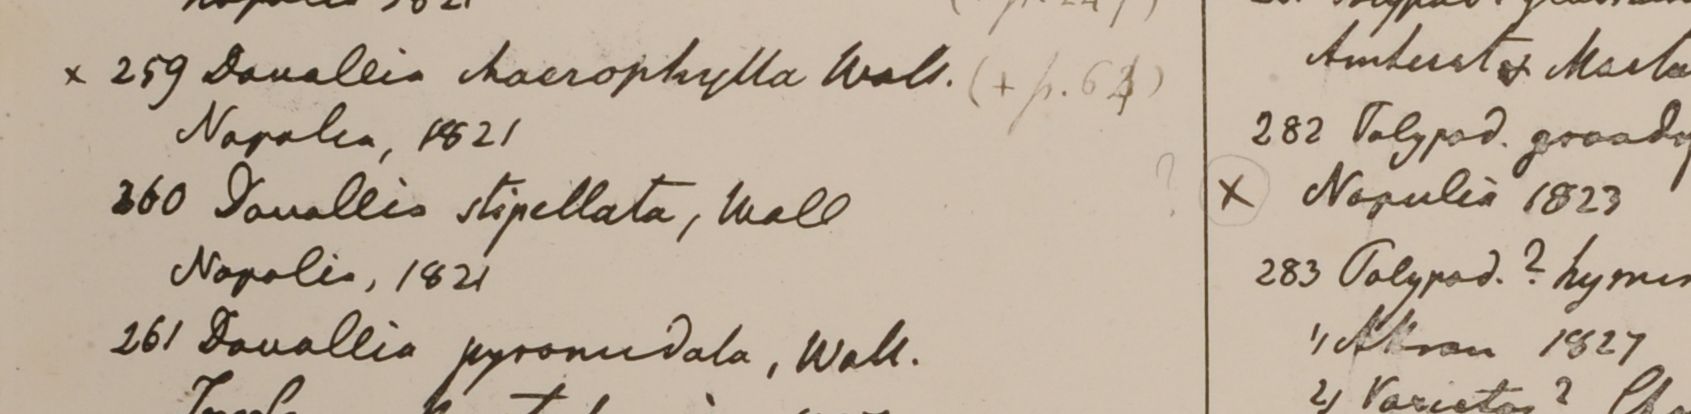 × 259 Davallia chaerophylla Wall. (+ p. 64)
Napalia, 1821
260 Davallia stipellata, Wall
Napalia, 1821
261 Davallia pyramidata, Wall.
Amherst & Marta
282 Polypod.
× Napalia 1823
283 Polypod. ? hymen
1) 1827
2) Varietas ?